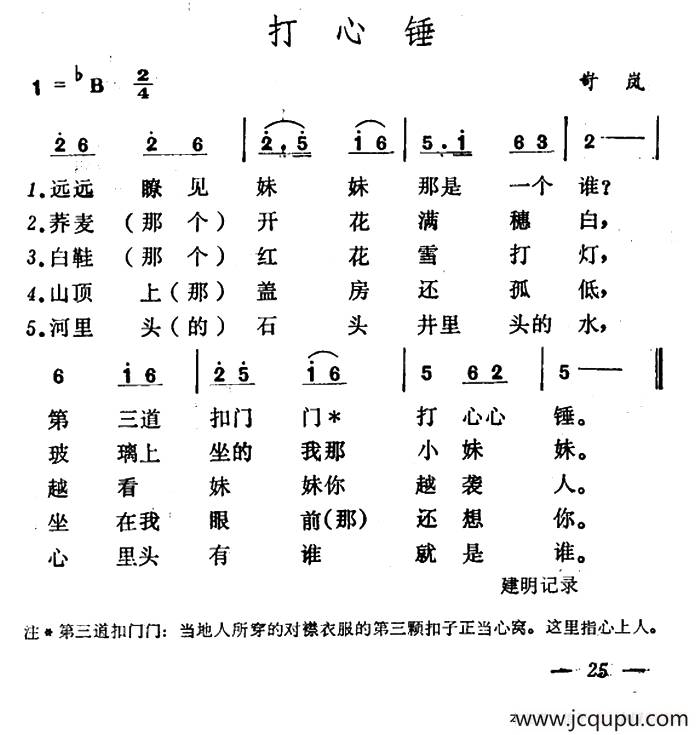 打心锤
1=♭B 2/4 岢岚
2̇ 6 2̇ 6 | 2̇. 5̇ 1̇ 6 | 5. 1̇ 6 3 | 2 — |
1.远远 瞭见 妹 妹 那是 一个 谁?
2.荞麦(那个)开 花 满 穗 白,
3.白鞋(那个)红 花 雪 打 灯,
4.山顶 上(那)盖 房 还 孤 低,
5.河里 头(的)石 头 井里 头的 水,
6 1̇ 6 | 2̇ 5̇ 1̇ 6 | 5 6 2 | 5 — ‖
第 三道 扣门 门* 打 心心 锤。
玻 璃上 坐的 我那 小 妹 妹。
越 看 妹 妹你 越 袭 人。
坐 在我 眼 前(那) 还 想 你。
心 里头 有 谁 就 是 谁。
建明记录
注*第三道扣门门:当地人所穿的对襟衣服的第三颗扣子正当心窝。这里指心上人。
— 25 —
zwww.jcqupu.com